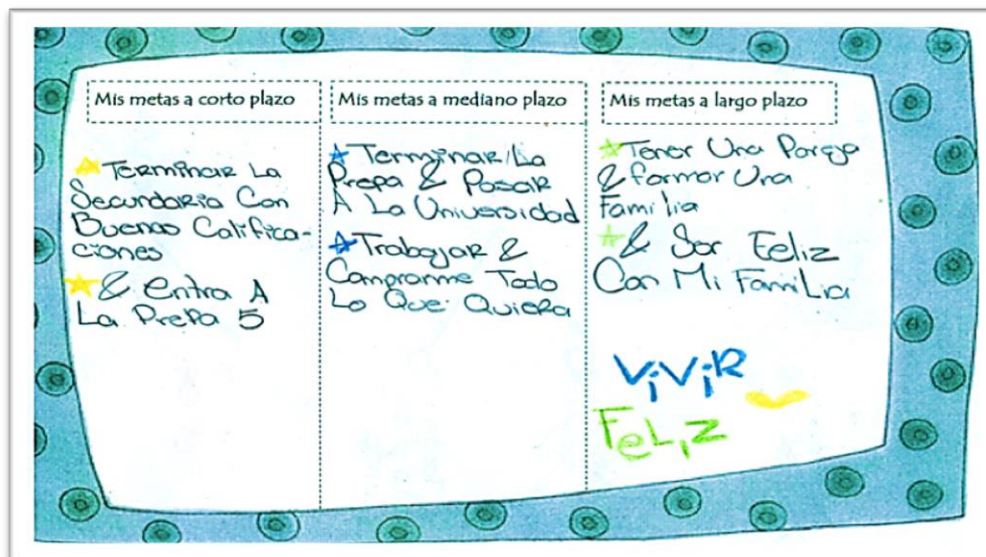 Mis metas a corto plazo
Terminar La
Secundaria Con
Buenas Califica-
ciones
& Entra A
La Prepa 5
Mis metas a mediano plazo
Terminar La
Prepa & Pasar
A La Universidad
Trabajar &
Comprarme Todo
Lo Que Quiera
Mis metas a largo plazo
Tener Una Pareja
& formar Una
Familia
& Ser Feliz
Con Mi Familia
ViViR
FeLiZ